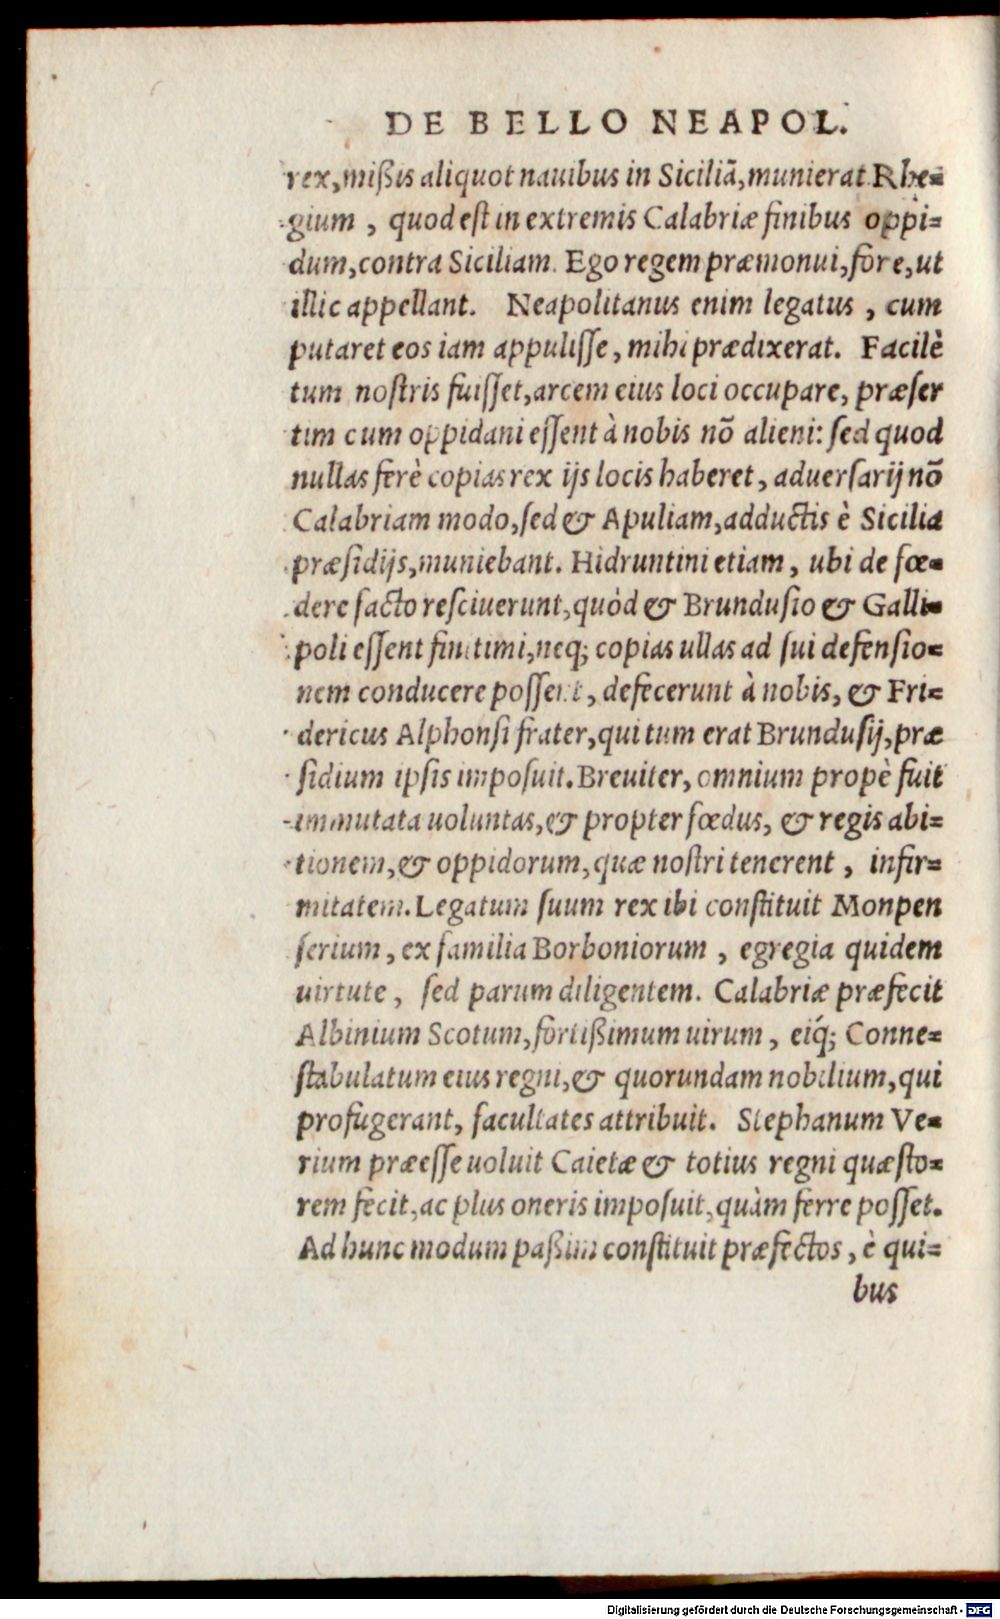 DE BELLO NEAPOL.
rex, mißis aliquot nauibus in Siciliã, munierat Rhe-
gium, quod est in extremis Calabriæ finibus oppi-
dum, contra Siciliam. Ego regem præmonui, fore, ut
illic appellant. Neapolitanus enim legatus, cum
putaret eos iam appulisse, mihi prædixerat. Facilè
tum nostris fuisset, arcem eius loci occupare, præser
tim cum oppidani essent à nobis nõ alieni: sed quod
nullas ferè copias rex ijs locis haberet, aduersarij nõ
Calabriam modo, sed & Apuliam, adductis è Sicilia
præsidijs, muniebant. Hidruntini etiam, ubi de fœ-
dere facto resciuerunt, quòd & Brundusio & Galli-
poli essent finitimi, neq; copias ullas ad sui defensio-
nem conducere possent, defecerunt à nobis, & Fri-
dericus Alphonsi frater, qui tum erat Brundusij, præ
sidium ipsis imposuit. Breuiter, omnium propè fuit
immutata uoluntas, & propter fœdus, & regis abi-
tionem, & oppidorum, quæ nostri tenerent, infir-
mitatem. Legatum suum rex ibi constituit Monpen
serium, ex familia Borboniorum, egregia quidem
uirtute, sed parum diligentem. Calabriæ præfecit
Albinium Scotum, fortißimum uirum, eiq́; Conne-
stabulatum eius regni, & quorundam nobilium, qui
profugerant, facultates attribuit. Stephanum Ve-
rium præesse uoluit Caietæ & totius regni quæsto-
rem fecit, ac plus oneris imposuit, quàm ferre posset.
Ad hunc modum paßim constituit præfectos, è qui-
bus
Digitalisierung gefördert durch die Deutsche Forschungsgemeinschaft - DFG